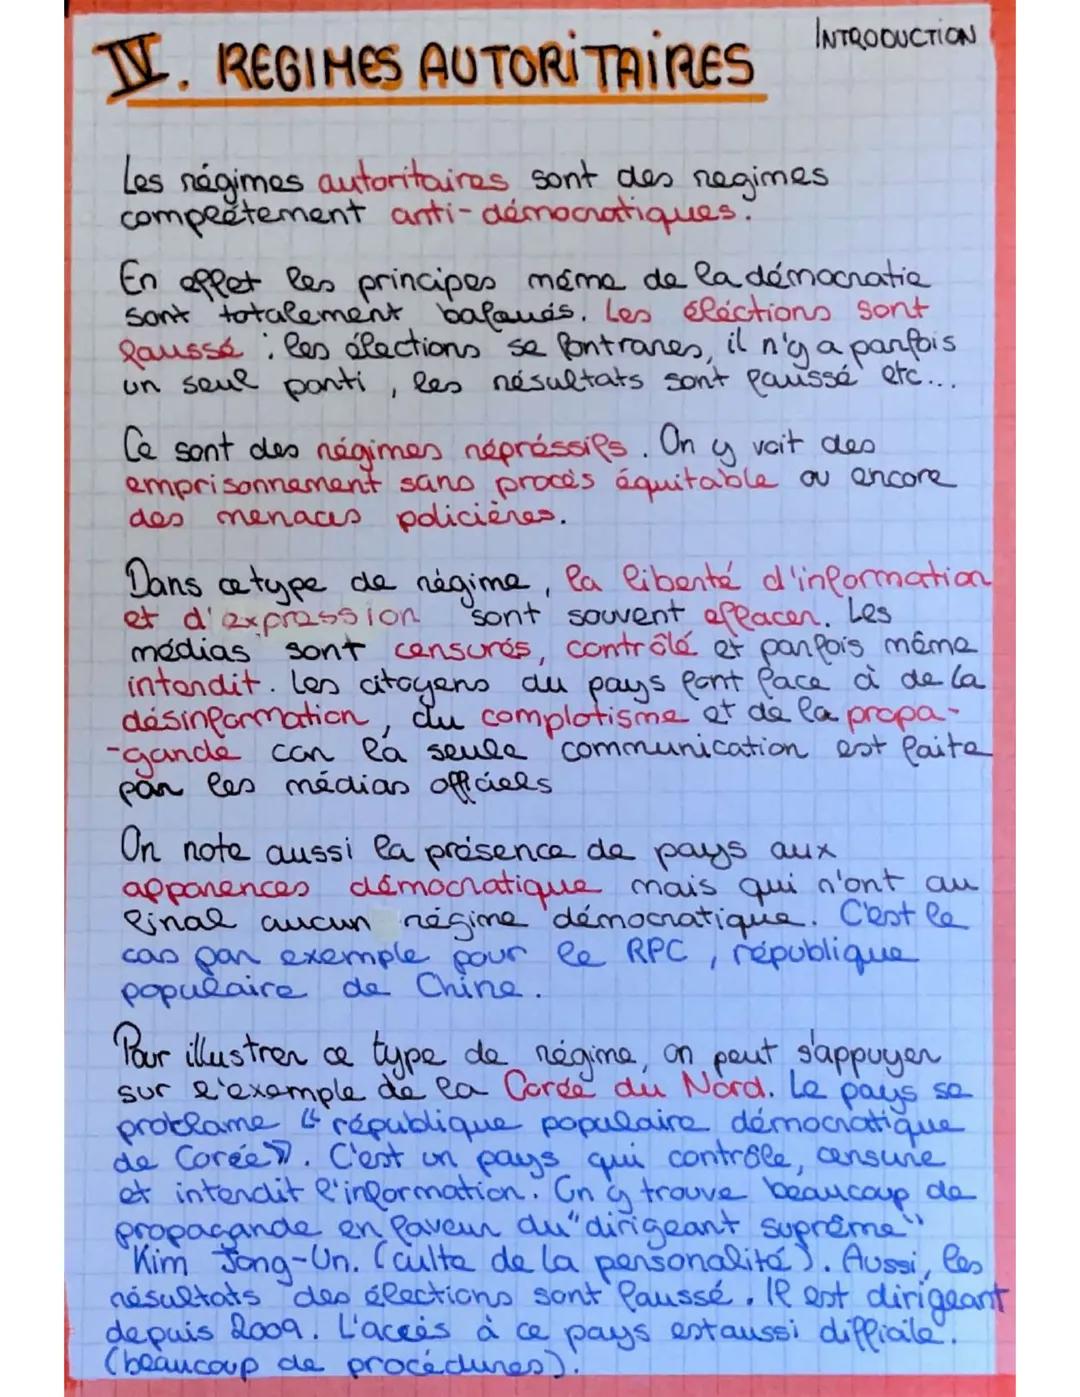 INTRODUCTION
IV. REGIMES AUTORITAIRES
Les régimes autoritaires sont des regimes
complètement anti-démocratiques.
En effet les principes même de la démocratie
sont totalement bafoués. Les éléctions sont
faussé : les élections se font rares, il n'y a parfois
un seul parti, les résultats sont faussé etc...
Ce sont des régimes répréssifs. On y voit des
emprisonnement sans procès équitable ou encore
des menaces policières.
Dans ce type de régime, la liberté d'information
et d'expression sont souvent effacer. Les
médias sont censurés, contrôlé et parfois même
interdit. Les citoyens du pays font face à de la
désinformation, du complotisme et de la propa-
-gande car la seule communication est faite
par les médias officiels
On note aussi la présence de pays aux
apparences démocratique mais qui n'ont au
final aucun régime démocratique. C'est le
cas par exemple pour le RPC, république
populaire de Chine.
Pour illustrer ce type de régime, on peut s'appuyer
sur l'exemple de la Corée du Nord. Le pays se
proclame « république populaire démocratique
de Corée». C'est un pays qui contrôle, censure
et interdit l'information. On y trouve beaucoup de
propagande en faveur du "dirigeant suprême"
Kim Jong-Un. (culte de la personalité). Aussi, les
résultats des élections sont faussé. Il est dirigeant
depuis 2009. L'accès à ce pays est aussi difficile.
(beaucoup de procédures).